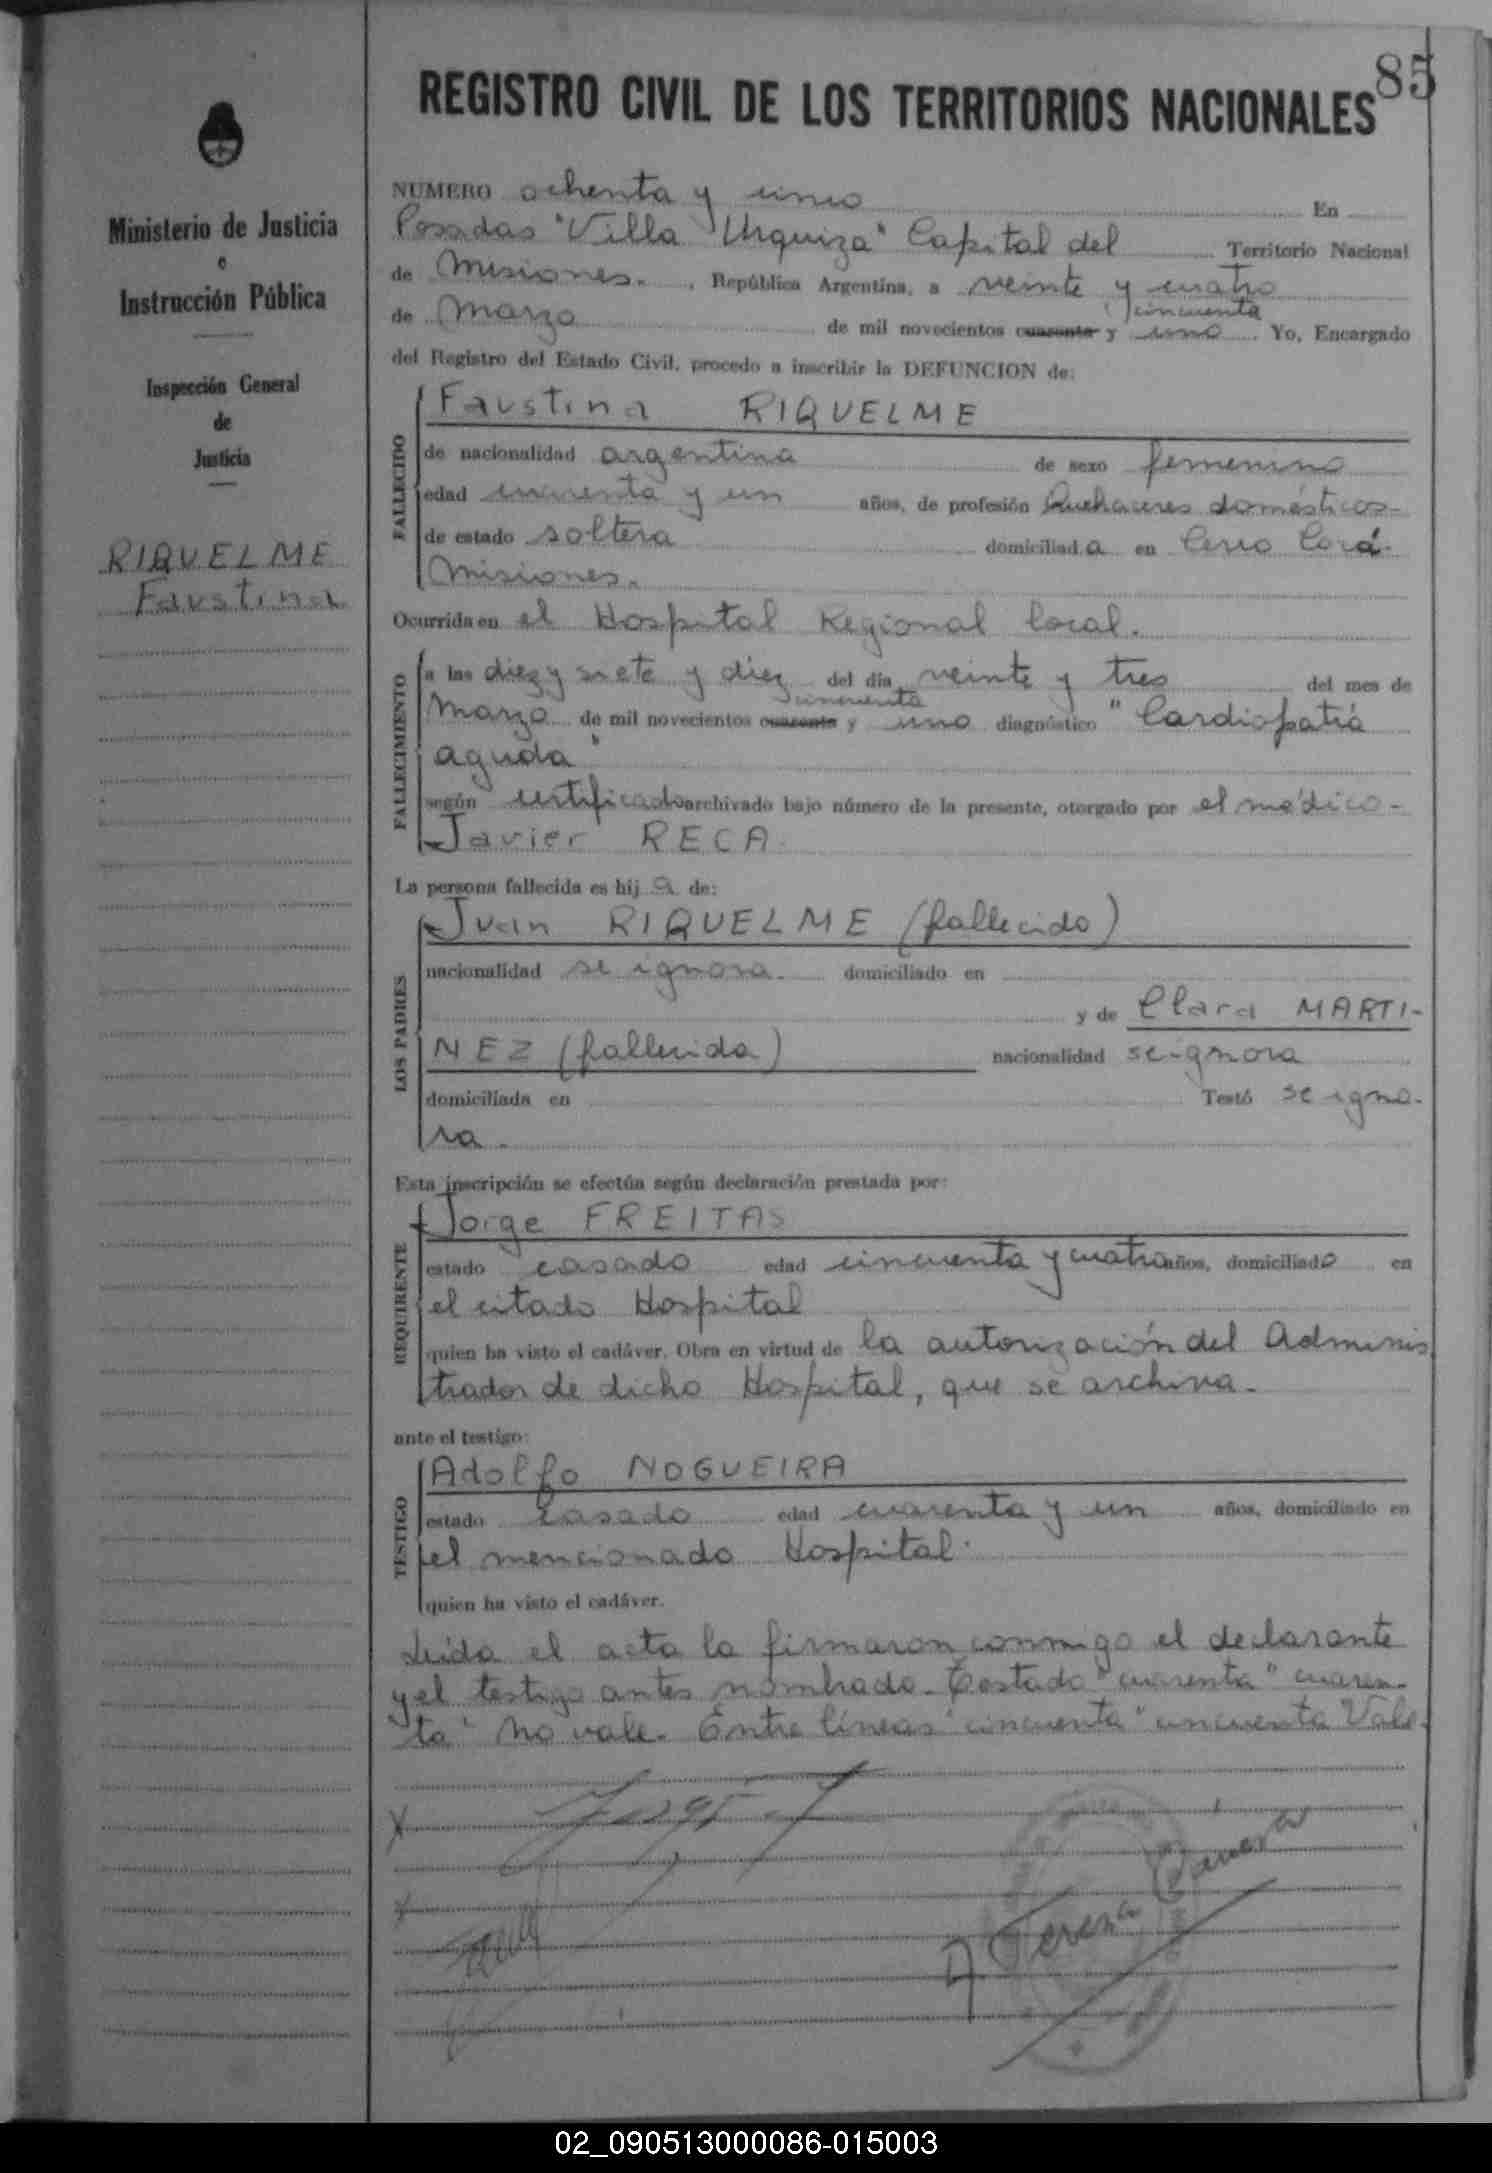 85
REGISTRO CIVIL DE LOS TERRITORIOS NACIONALES
Ministerio de Justicia
e
Instrucción Pública
Inspección General
de
Justicia
RIQUELME
Faustina
NUMERO ochenta y cinco En
Posadas "Villa Urquiza" Capital del Territorio Nacional
de Misiones. , República Argentina, a veinte y cuatro
cincuenta
de Marzo de mil novecientos cuarenta y uno. Yo, Encargado
del Registro del Estado Civil, procedo a inscribir la DEFUNCION de:
FALLECIDO
Faustina RIQUELME
de nacionalidad argentina de sexo femenino
edad cuarenta y un años, de profesión Quehaceres domésticos-
de estado soltera domiciliada en Cerro Corá-
Misiones.
Ocurrida en el Hospital Regional local.
FALLECIMIENTO
a las diez y siete y diez del día veinte y tres del mes de
cincuenta
Marzo de mil novecientos cuarenta y uno diagnóstico "Cardiopatia
aguda"
según certificado archivado bajo número de la presente, otorgado por el médico-
Javier RECA.
La persona fallecida es hija de:
LOS PADRES
Juan RIQUELME (fallecido)
nacionalidad se ignora. domiciliado en
y de Clara MARTI-
NEZ (fallecida) nacionalidad se ignora
domiciliada en Testó se igno-
ra.
Esta inscripción se efectúa según declaración prestada por:
REQUIRENTE
Jorge FREITAS
estado casado edad cincuenta y cuatro años, domiciliado en
el citado Hospital
quien ha visto el cadáver. Obra en virtud de la autorización del Adminis
trador de dicho Hospital, que se archiva.
ante el testigo:
TESTIGO
Adolfo NOGUEIRA
estado Casado edad cuarenta y un años, domiciliado en
el mencionado Hospital.
quien ha visto el cadáver.
Leida el acta la firmaron conmigo el declarante
y el testigo antes nombrado. Testado "cuarenta" cuaren-
ta" No vale. Entre líneas "cincuenta" cincuenta Vale.
02_090513000086-015003